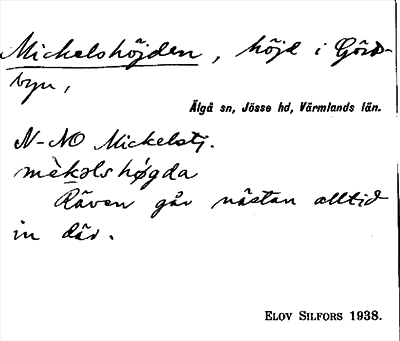 Mickelshöjden, höjd i Görds-
byn,
Älgå sn, Jösse hd, Värmlands län.
N-NO Mickelstj.
mèkəls høgda
Räven går nästan alltid
in där.
ELOV SILFORS 1938.